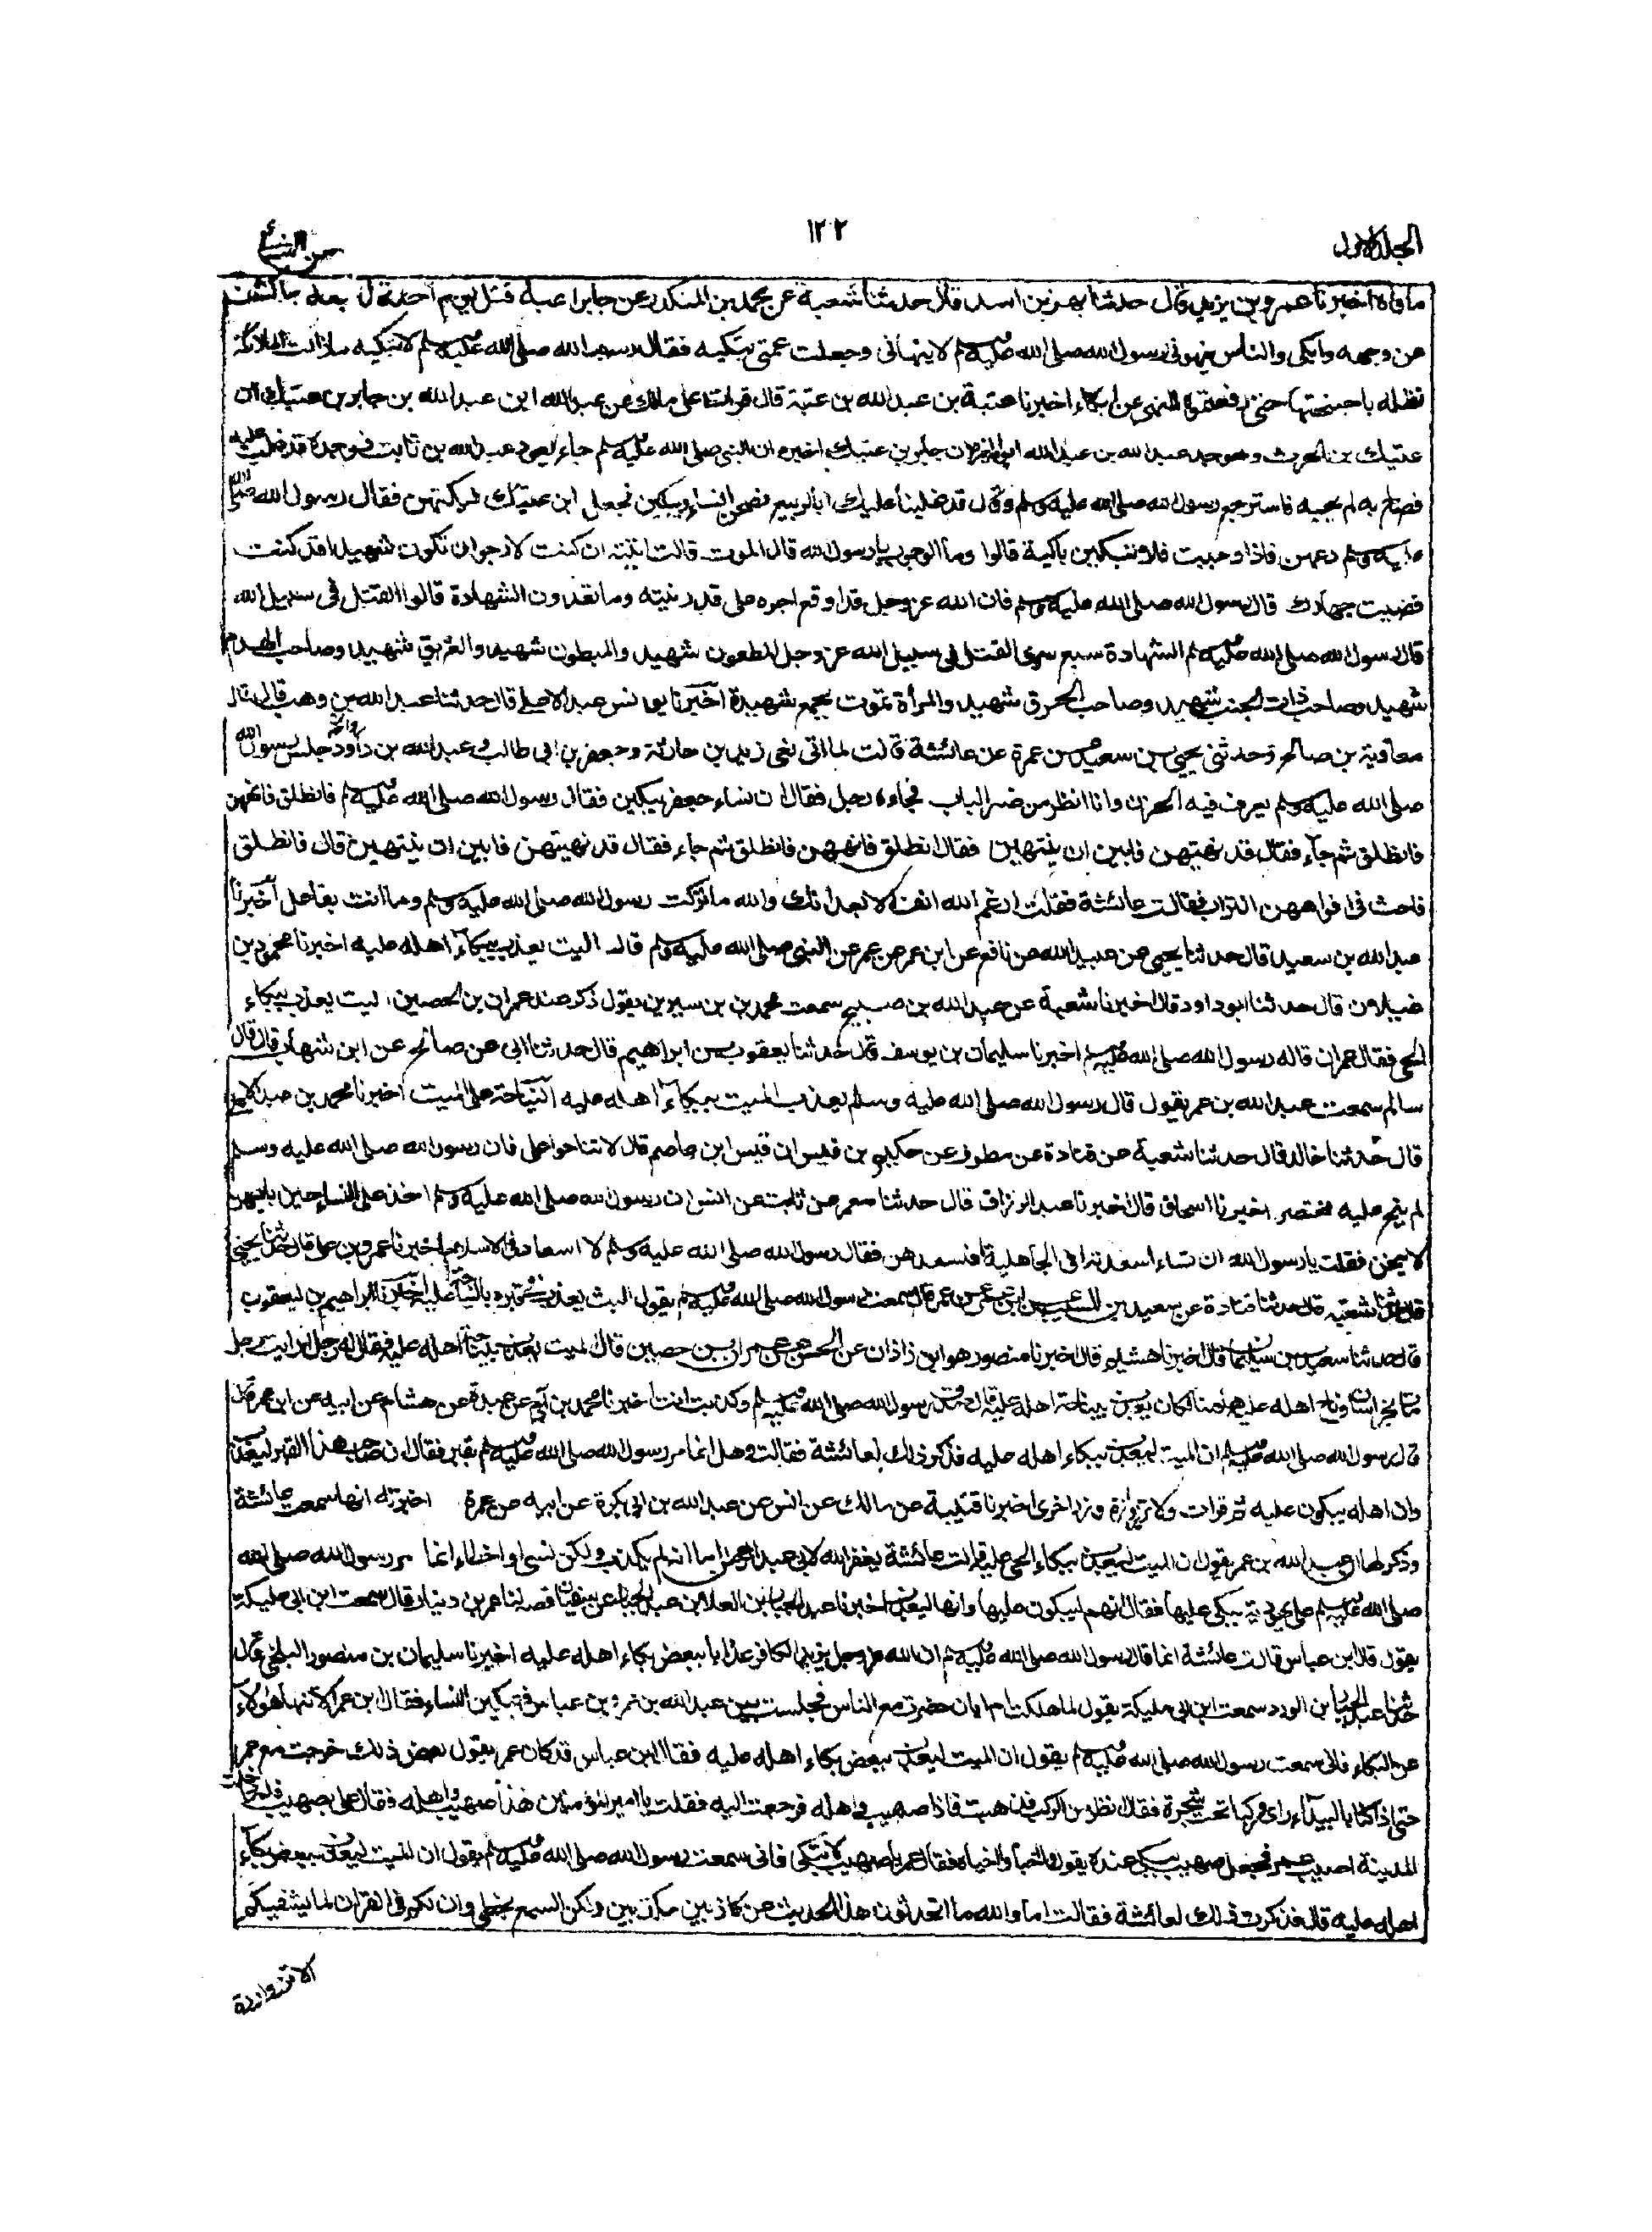 الجلد الاول
١٢٢
من النسائى
ماواه اخبرنا عمرو بن يزيد قال حدثنا بهز بن اسد قال حدثنا شعبة عن محمد بن المنكدر عن جابر اباه قتل يوم احد قال جعلت اكشف
عن وجهه وابكى والناس ينهونى رسول الله صلى الله عليه وسلم لا ينهانى وجعلت عمتى تبكيه فقال رسول الله صلى الله عليه وسلم لا تبكيه مازالت الملائكة
تظله باجنحتها حتى رفعتموه النهى عن البكاء اخبرنا عتبة بن عبد الله بن عتبة قال قرات على مالك عن عبد الله ابن عبد الله بن جابر بن عتيك ان
عتيك بن الحرث وهو جد عبد الله بن عبد الله ابو امه اخبره ان جابر بن عتيك اخبره ان النبى صلى الله عليه وسلم جاء يعود عبد الله بن ثابت فوجده قد غلب عليه
فصاح به لم يجبه فاسترجع رسول الله صلى الله عليه وسلم وقال قد غلبنا عليك ابا الربيع فصحن النساء وبكين فجعل ابن عتيك يسكتهن فقال رسول الله صلى الله
عليه وسلم دعهن فاذا وجبت فلا تبكين باكية قالوا وما الوجوب يا رسول الله قال الموت قالت ابنته ان كنت لارجو ان تكون شهيدا قد كنت
قضيت جهادك قال رسول الله صلى الله عليه وسلم فان الله عز وجل قد اوقع اجره على قدر نيته وما تعدون الشهادة قالوا القتل فى سبيل الله
قال رسول الله صلى الله عليه وسلم الشهادة سبع سوى القتل فى سبيل الله عز وجل المطعون شهيد والمبطون شهيد والغريق شهيد وصاحب الهدم
شهيد وصاحب ذات الجنب شهيد وصاحب الحرق شهيد والمرأة تموت بجمع شهيدة اخبرنا يونس عبد الاعلى قال حدثنا عبد الله بن وهب قال قال
معاوية بن صالح وحدثنى يحيى بن سعيد عن عمرة عن عائشة قالت لما اتى نعى زيد بن حارثة وجعفر بن ابى طالب وعبد الله بن رواحة جلس رسول الله
صلى الله عليه وسلم يعرف فيه الحزن وانا انظر من صئر الباب فجاءه رجل فقال ان نساء جعفر يبكين فقال رسول الله صلى الله عليه وسلم فانطلق فانههن
فانطلق ثم جاء فقال قد نهيتهن فابين ان ينتهين فقال انطلق فانههن فانطلق ثم جاء فقال قد نهيتهن فابين ان ينتهين قال فانطلق
فاحث فى افواههن التراب فقالت عائشة فقلت ارغم الله انف الابعد انك والله ما تركت رسول الله صلى الله عليه وسلم وما انت بفاعل اخبرنا
عبد الله بن سعيد قال حدثنا يحيى عن عبيد الله عن نافع عن ابن عمر عن عمر عن النبى صلى الله عليه وسلم قال الميت يعذب ببكاء اهله عليه اخبرنا محمود بن
غيلان قال حدثنا ابو داود قال اخبرنا شعبة عن عبد الله بن صبيح سمعت محمد بن سيرين يقول ذكر عند عمران بن الحصين الميت يعذب ببكاء
الحى فقال عمران قاله رسول الله صلى الله عليه وسلم اخبرنا سليمان بن يوسف قال حدثنا يعقوب بن ابراهيم قال حدثنا ابى عن صالح عن ابن شهاب قال قال
سالم سمعت عبد الله بن عمر يقول قال رسول الله صلى الله عليه وسلم يعذب الميت ببكاء اهله عليه النياحة على الميت اخبرنا محمد بن عبد الاعلى
قال حدثنا خالد قال حدثنا شعبة عن قتادة عن مطرف عن حكيم بن قيس ان قيس ابن عاصم قال لا تنوحوا على فان رسول الله صلى الله عليه وسلم
لم ينح عليه مختصر اخبرنا اسحاق قال اخبرنا عبد الرزاق قال حدثنا معمر عن ثابت عن انس ان رسول الله صلى الله عليه وسلم اخذ على النساء حين بايعهن
لا ينحن فقلت يا رسول الله ان نساء اسعدننا فى الجاهلية افنسعدهن فقال رسول الله صلى الله عليه وسلم لا اسعاد فى الاسلام اخبرنا عمرو بن على قال حدثنا يحيى
قال حدثنا شعبة قال حدثنا قتادة عن سعيد بن المسيب عن ابن عمر عن عمر قال سمعت رسول الله صلى الله عليه وسلم يقول الميت يعذب فى قبره بالنياحة عليه اخبرنا ابراهيم بن يعقوب
قال حدثنا سعيد بن سليمان قال اخبرنا هشيم قال اخبرنا منصور هو ابن زاذان عن الحسن عن عمران بن حصين قال الميت يعذب بنياحة اهله عليه فقال له رجل ارايت رجل
مات بخراسان وناح اهله عليه ههنا اكان يعذب بنياحة اهله عليه قال صدق رسول الله صلى الله عليه وسلم وكذبت انت اخبرنا محمد بن آدم عن عبدة عن هشام عن ابيه عن ابن عمر قال
قال رسول الله صلى الله عليه وسلم ان الميت ليعذب ببكاء اهله عليه فذكر ذلك لعائشة فقالت وهل انما مر رسول الله صلى الله عليه وسلم بقبر فقال ان صاحب هذا القبر ليعذب
وان اهله يبكون عليه ثم قرات ولا تزر وازرة وزر اخرى اخبرنا قتيبة عن مالك عن انس عن عبد الله بن ابى بكرة عن ابيه عن عمرة اخبرته انها سمعت عائشة
وذكر لها ان عبد الله بن عمر يقول ان الميت ليعذب ببكاء الحى عليه قالت عائشة يغفر الله لابى عبد الرحمن اما انه لم يكذب ولكن نسى او اخطاء انما مر رسول الله صلى الله
صلى الله عليه وسلم على يهودية يبكى عليها فقال انهم ليبكون عليها وانها لتعذب اخبرنا عبد الجبار بن العلاء بن عبد الجبار عن سفيان قصه لنا عمر بن دينار قال سمعت ابن ابى مليكة
يقول قال ابن عباس قالت عائشة انما قال رسول الله صلى الله عليه وسلم ان الله عز وجل يزيد الكافر عذابا ببعض بكاء اهله عليه اخبرنا سليمان بن منصور البلخى قال
حدثنا عبد الجبار بن الورد سمعت ابن ابى مليكة يقول لما هلكت ام ابان حضرت مع الناس فجلست بين عبد الله بن عمر وبن عباس فبكين النساء فقال ابن عمر الا تنهى هؤلاء
عن البكاء فانى سمعت رسول الله صلى الله عليه وسلم يقول ان الميت ليعذب ببعض بكاء اهله عليه فقال ابن عباس قد كان عمر يقول بعض ذلك خرجت مع عمر
حتى اذا كنا بالبيداء راى ركبا تحت شجرة فقال انظر من الركب فذهبت فاذا صهيب واهله فرجعت اليه فقلت يا امير المؤمنين هذا صهيب واهله فقال على بصهيب فلما دخلت
المدينة اصيب عمر فجعل صهيب يبكى عنده يقول وااخياه وااخياه فقال عمر يا صهيب لا تبكى فانى سمعت رسول الله صلى الله عليه وسلم يقول ان الميت ليعذب ببعض بكاء
اهله عليه قال فذكرت ذلك لعائشة فقالت اما والله ما تحدثون هذا الحديث عن كاذبين مكذبين ولكن السمع يخطى وان لكم فى القران لما يشفيكم
الا تزر وازرة